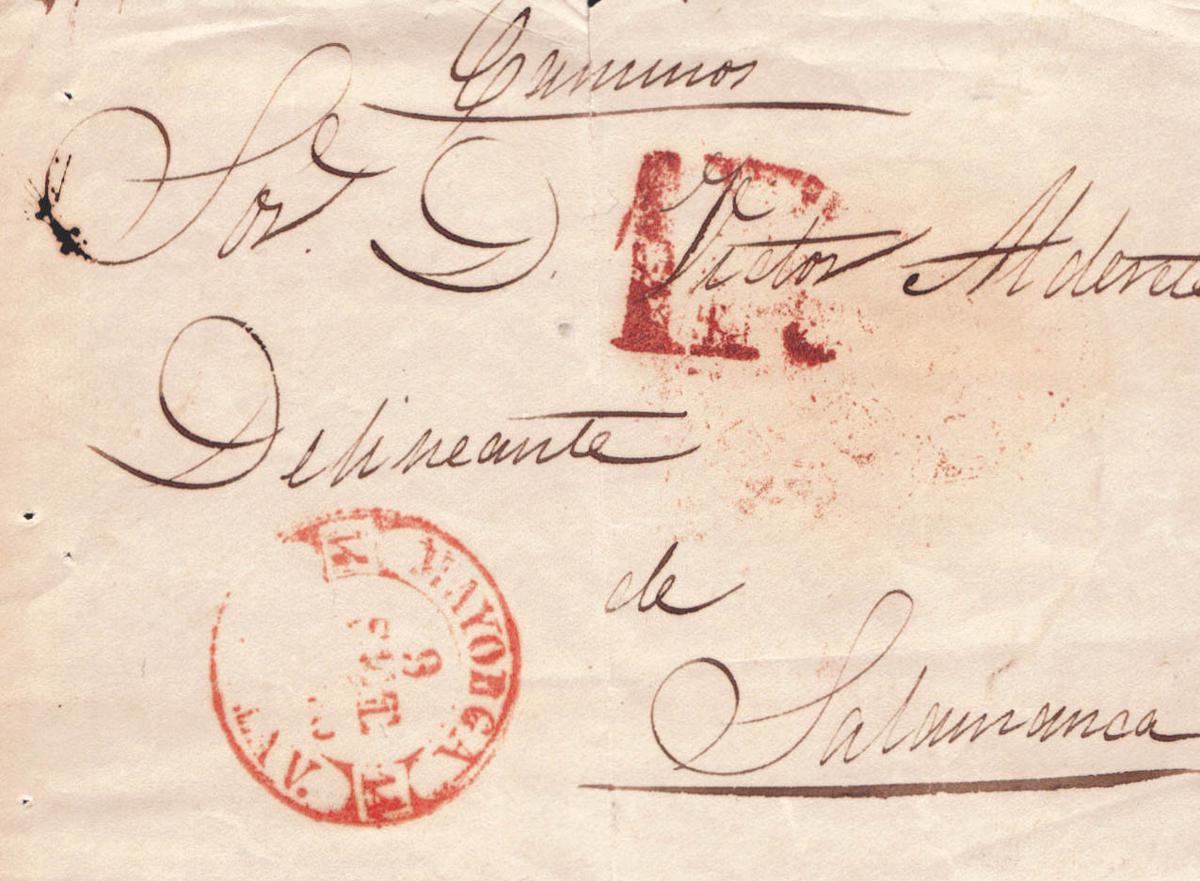 Caminos
Sor. D. Victor Alderete
Delineante
de
Salamanca
MAYORGA
9
SET